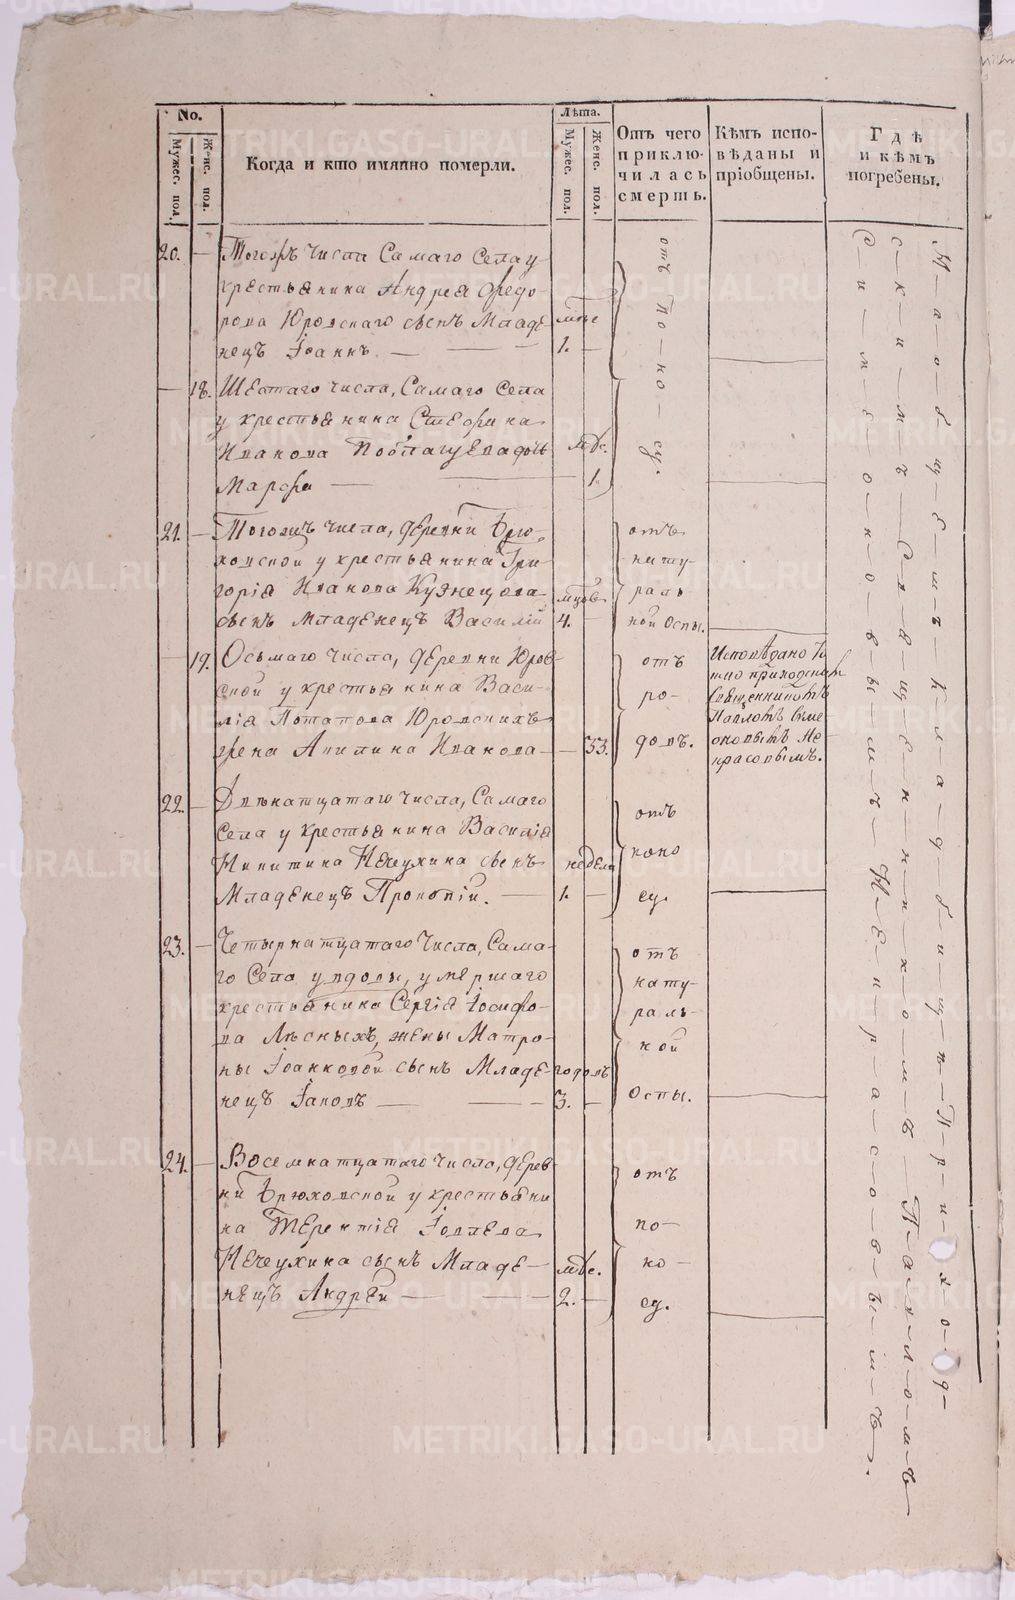 No.
Мужес. пол.
Женс. пол.
Когда и кто имянно померли.
Лѣта.
Мужес. пол.
Женс. пол.
Отъ чего
приклю-
чилась
смерть.
Кѣмъ испо-
вѣданы и
пріобщены.
Гдѣ
и кѣмъ
погребены.
20. — Тогожъ числа Самаго Села у
крестьянина Андрея Федо-
рова Юровскаго сынъ Младе-
нецъ Іоаннъ. —
1. —
отъ по-но-су.
— 18. Шестаго числа, Самаго Села
у крестьянина Стефана
Иванова дочь
Марфа —
мѣс.
1.
21. — Тогожъ числа, деревни Брю-
ховской у крестьянина Гри-
горія Иванова Кузнецова
сынъ младенецъ Василій
4. —
отъ
нату-
раль
ной Оспы.
— 19. Осьмаго числа, деревни Юров-
ской у крестьянина Васи-
лія Потапова Юровскихъ
жена Акилина Иванова —
— 33.
отъ
ро-
довъ.
Исповѣдано
Священникомъ
Павломъ Симе-
оновымъ Не-
красовымъ.
22. — Двѣнатцатаго числа, Самаго
Села у крестьянина Василія
Никитина Нечухина сынъ
Младенецъ Прокопій. —
недели
1. —
отъ
поно
су.
23. — Четырнатцатаго Числа, Сама-
го Села у вдовы, умершаго
крестьянина Сергія Іосифо-
ва Лѣсныхъ, жены Матро-
ны Іоанновой сынъ Младе-
нецъ Іаковъ —
годовъ
3. —
отъ
нату-
раль-
ной
Оспы.
24. — Восемнатцатаго Числа, дерев-
ни Брюховской у крестьяни
на Терентія Іовлева
Нечухина сынъ Младе-
нецъ Андрей —
мѣс.
2. —
отъ
по-
но-
су.
На общемъ кладбищѣ Приход-
скимъ Священникомъ Павломъ
Симеоновымъ Некрасовымъ.
METRIKI.GASO-URAL.RU